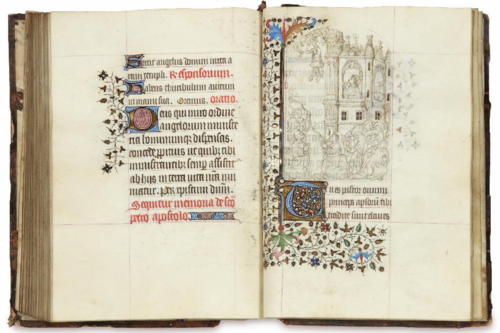 Stetit angelus domini iuxta a
ram templi. Responsorium.
Habens thuribulum aureum
in manu sua. Oremus. oratio.
Deus qui miro ordine
angelorum ministe
ria hominumque dispensas.
concede propicius ut quibus tibi
ministrantibus semper assistit
ab hiis in terra vita nostra mu
niatur. per christum dominum
Sequitur memoria de sancto
petro apostolo.
Tu es pastor ovium
princeps apostolorum tibi
tradite sunt claves